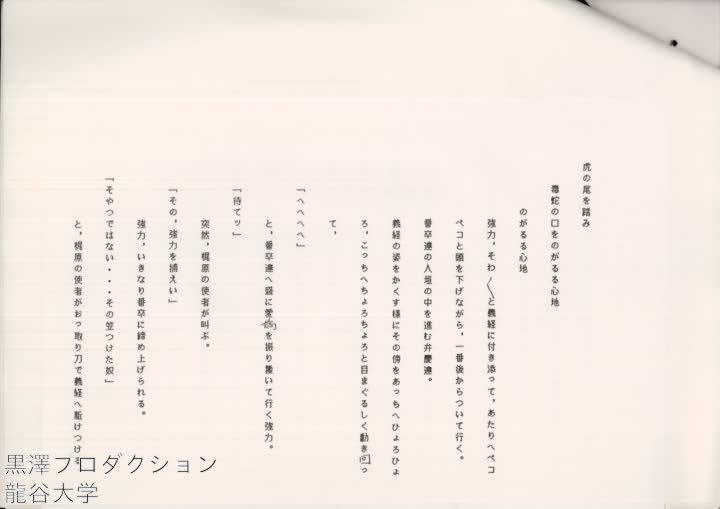 虎の尾を踏み
毒蛇の口をのがるる心地
のがるる心地
強力，そわ〳〵と義経に付き添って，あたりへペコ
ペコと頭を下げながら，一番後からついて行く。
番卒達の人垣の中を進む弁慶達。
義経の姿をかくす様にその傍をあっちへひょろひょ
ろ，こっちへちょろちょろと目まぐるしく動き回っ
て，
「へへへへ」
と，番卒達へ盛に愛を振り撒いて行く強力。
「待てッ」
突然，梶原の使者が叫ぶ。
「その，強力を捕えい」
強力，いきなり番卒に締め上げられる。
「そやつではない・・・その笠つけた奴」
と，梶原の使者がおっ取り刀で義経へ駈けつける
黒澤プロダクション
龍谷大学